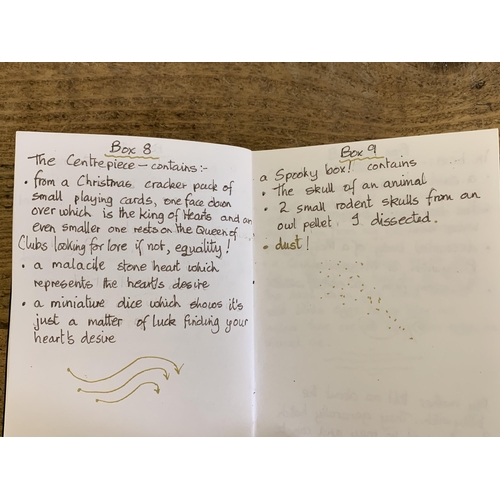 Box 8
The Centrepiece – contains:-
• from a Christmas cracker pack of
small playing cards, one face down
over which is the king of Hearts and an
even smaller one rests on the Queen of
Clubs looking for love if not, equality!
• a malacile stone heart which
represents the heart's desire
• a miniature dice which shows it's
just a matter of luck finding your
heart's desire
Box 9
a Spooky box! contains
• The skull of an animal
• 2 small rodent skulls from an
owl pellet. I dissected.
• dust!